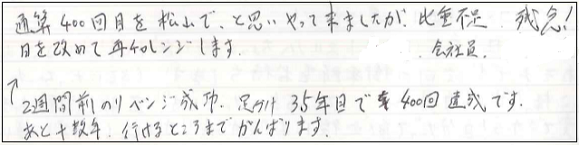 通算400回目を松山で、と思いやって来ましたが比重不足 残念!
日を改めて再チャレンジします. 会社員.
↑2週間前のリベンジ成功. 足かけ35年目で400回達成です.
あと十数年. 行けるところまでがんばります.